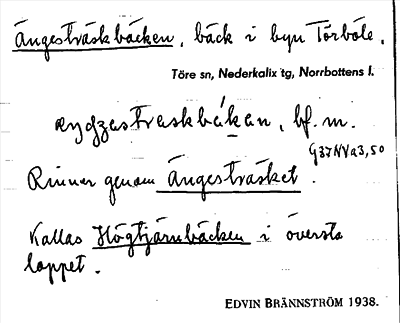 Ängesträskbäcken, bäck i byn Törböle.
Töre sn, Nederkalix tg, Norrbottens l.
æŋgastraskbäkan, bf. m.
G37NVa3,50
Rinner genom Ängesträsket.
Kallas Högtjärnbäcken i översta
loppet.
EDVIN BRÄNNSTRÖM 1938.